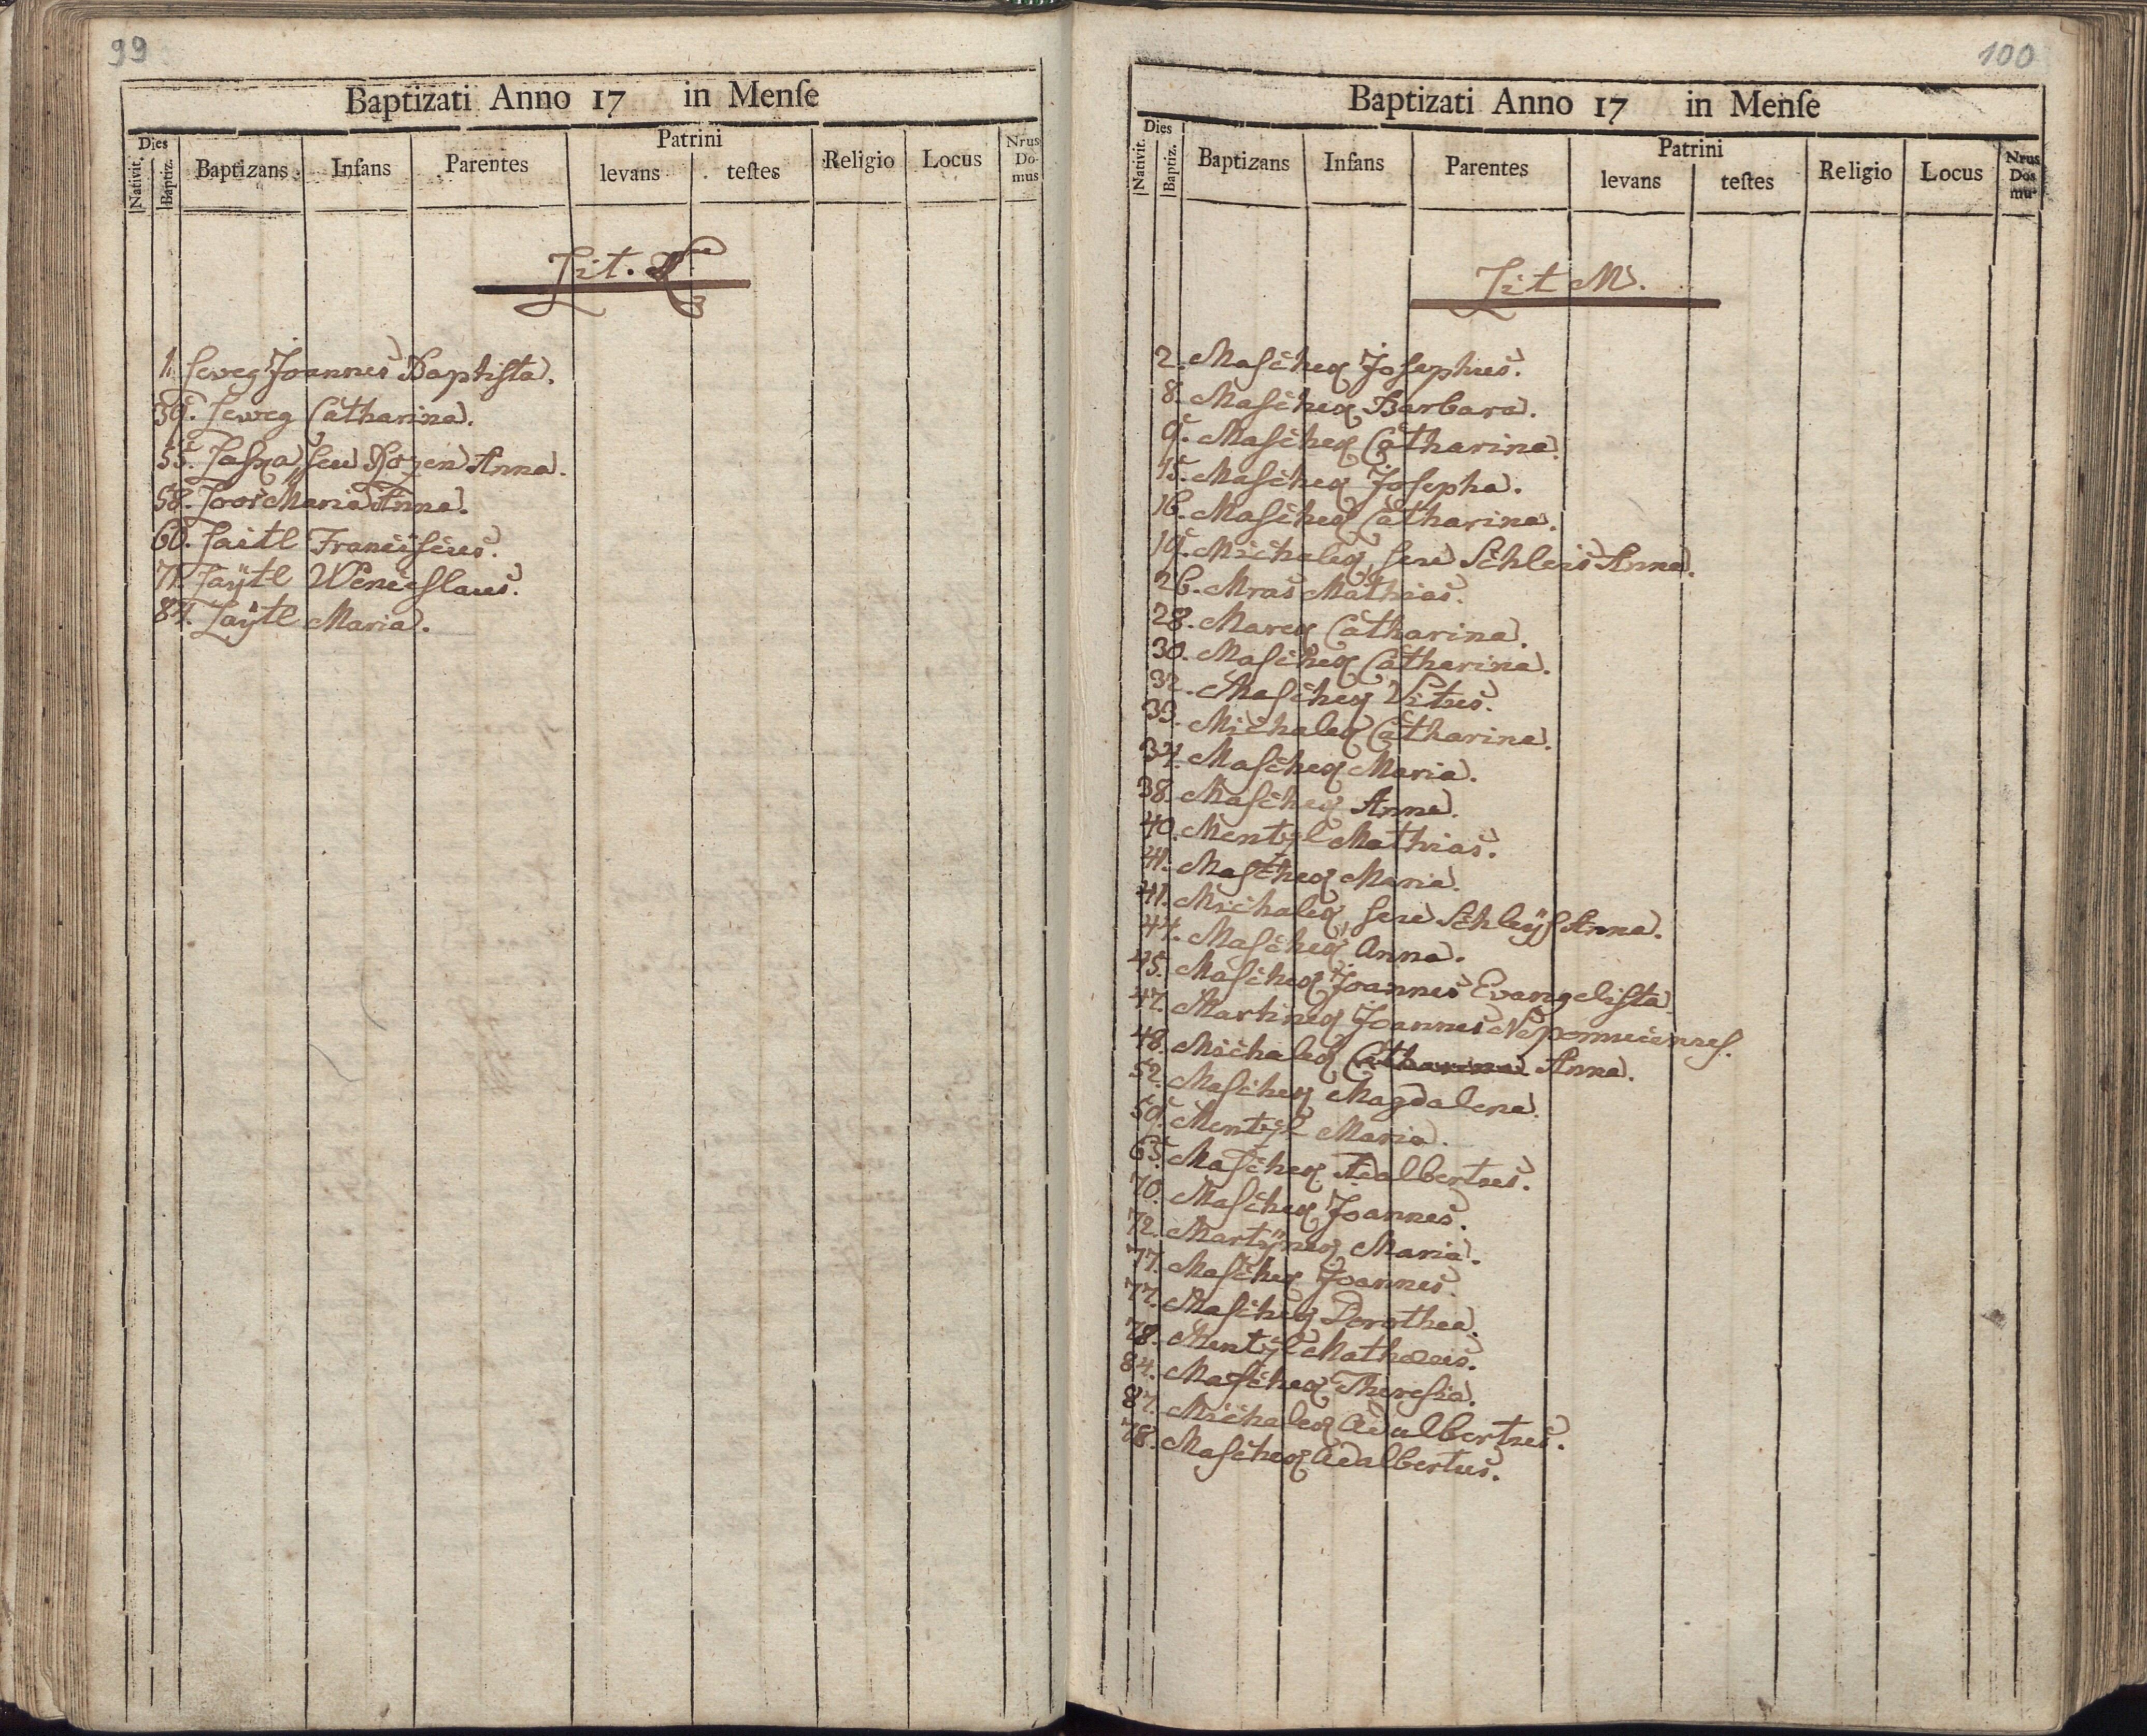 99
Baptizati Anno 17 in Menſe
Dies
Nativit.
Baptiz.
Baptizans
Infans
Parentes
Patrini
levans
teſtes
Religio
Locus
Nrus
Do-
mus
Lit.
1. Joannes Baptiſta.
39. Catharina.
55. ſeu Anna.
58. Maria Anna.
60. Laitl Franciſcus.
71. Laÿtl Wenceſlaus.
84. Laÿtl Maria.
100
Baptizati Anno 17 in Menſe
Dies
Nativit.
Baptiz.
Baptizans
Infans
Parentes
Patrini
levans
teſtes
Religio
Locus
Nrus
Do-
mus
Lit M.
2. Maſchek Joſephus.
8. Maſchek Barbara.
9. Maſchek Catharina.
15. Maſchek Joſepha.
16. Maſchek Catharina.
19. Michalek, ſeu Schleis Anna.
26. Mras Mathias.
28. Marek Catharina.
30. Maſchek Catharina.
32. Maſchek Vitus.
33. Michalek Catharina.
34. Maſchek Maria.
38. Maſchek Anna.
40. Mentzl Mathias.
41. Maſchek Maria.
41. Michalek, ſeu Schleÿſ Anna.
44. Maſchek Anna.
45. Maſchek Joannes Evangeliſta.
47. Martinek Joannes Nepomucenus.
48. Michalek Catharina Anna.
52. Maſchek Magdalena.
59. Mentzl Maria.
65. Maſchek Adalbertus.
70. Maſchek Joannes.
72. Martÿnek Maria.
77. Maſchek Joannes.
77. Maſchek Dorothea.
78. Mentzl Mathæus.
84. Maſchek Thereſia.
87. Michalek Adalbertus.
78. Maſchek Adalbertus.